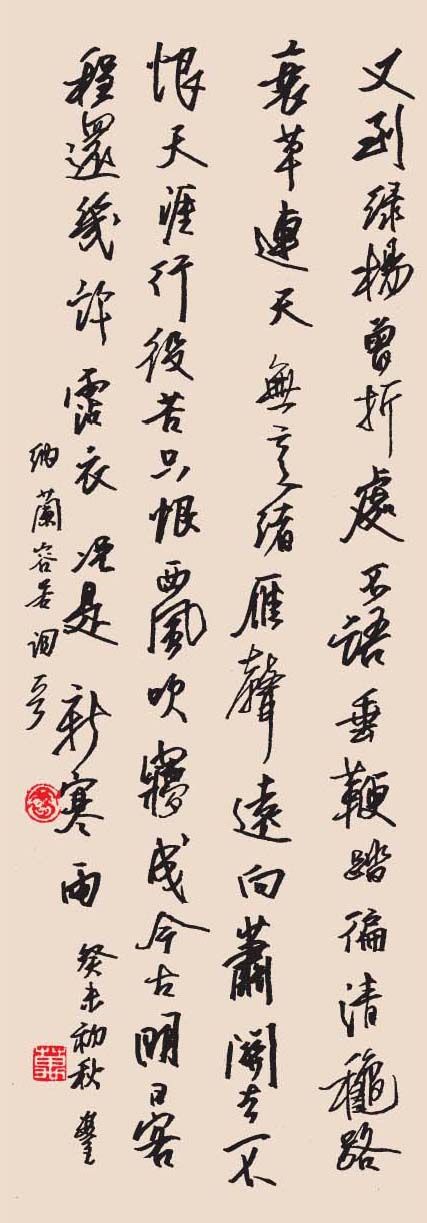 又到绿楊曾折處不語垂鞭踏徧清穐路
衰草連天無意緒雁聲遠向蕭關去不
恨天涯行役苦只恨西風吹夢成今古明日客
程還幾許霑衣况是新寒雨
納蘭容若詞一首
癸未初秋